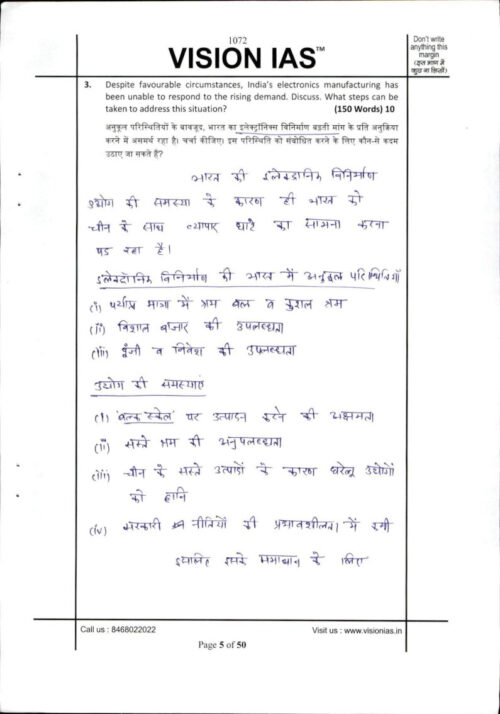 1072
VISION IAS™
Don't write
anything this
margin
(इस भाग में
कुछ ना लिखें)
3. Despite favourable circumstances, India's electronics manufacturing has
been unable to respond to the rising demand. Discuss. What steps can be
taken to address this situation? (150 Words) 10
अनुकूल परिस्थितियों के बावजूद, भारत का इलेक्ट्रॉनिक्स विनिर्माण बढ़ती मांग के प्रति अनुक्रिया
करने में असमर्थ रहा है। चर्चा कीजिए। इस परिस्थिति को संबोधित करने के लिए कौन-से कदम
उठाए जा सकते हैं?
भारत की इलेक्ट्रानिक विनिर्माण
उद्योग की समस्या के कारण ही भारत को
चीन के साथ व्यापार घाटे का सामना करना
पड़ रहा है।
इलेक्ट्रॉनिक विनिर्माण की भारत में अनुकूल परिस्थितियाँ
(i) पर्याप्त मात्रा में श्रम बल व कुशल श्रम
(ii) विशाल बाजार की उपलब्धता
(iii) पूँजी व निवेश की उपलब्धता
उद्योग की समस्याएं
(i) 'बल्क स्केल' पर उत्पादन करने की अक्षमता
(ii) सस्ते श्रम की अनुपलब्धता
(iii) चीन के सस्ते उत्पादों के कारण घरेलू उद्योगों
को हानि
(iv) सरकारी नीतियों की प्रभावशीलता में कमी
इसलिए इसके समाधान के लिए
Call us : 8468022022
Visit us : www.visionias.in
Page 5 of 50